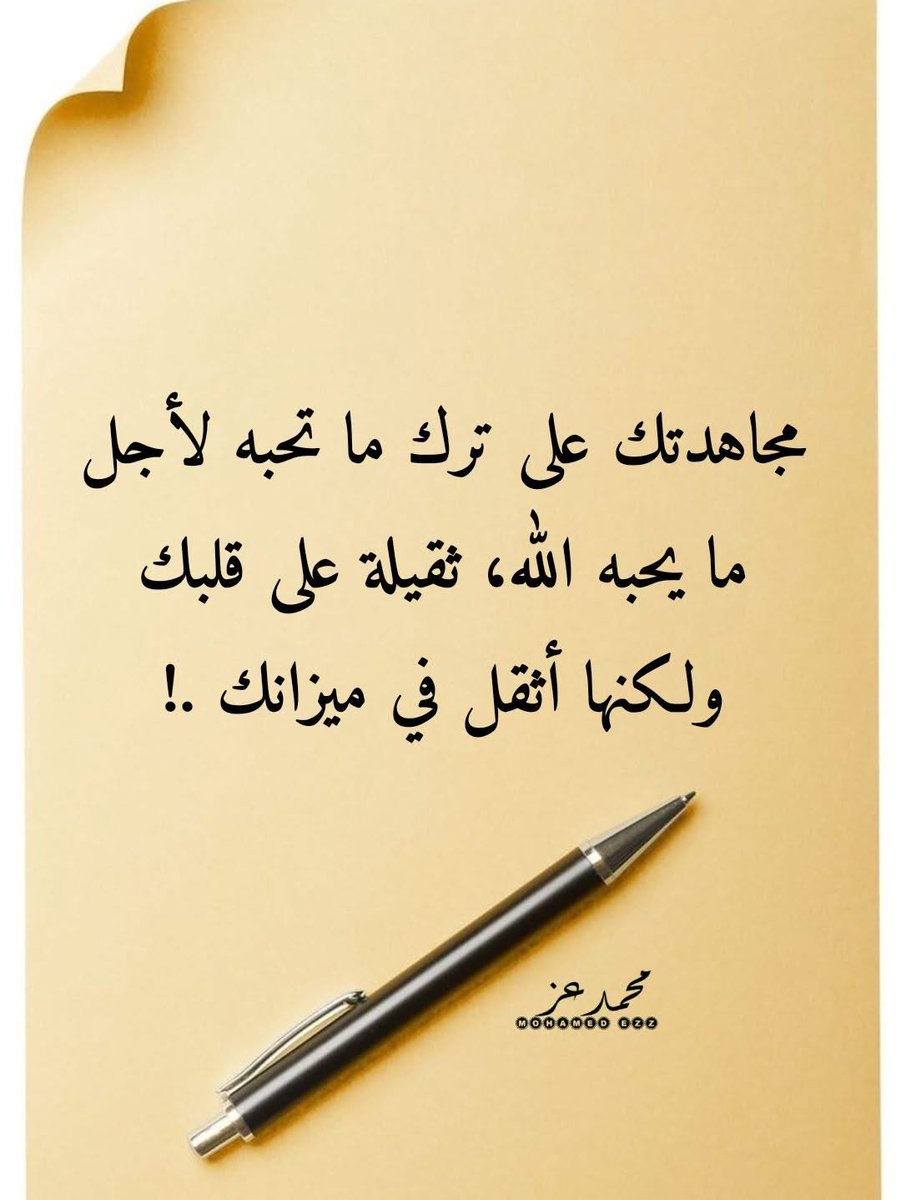 مجاهدتك على ترك ما تحبه لأجل
ما يحبه الله، ثقيلة على قلبك
ولكنها أثقل في ميزانك .!
محمد عز
MOHAMED EZZ